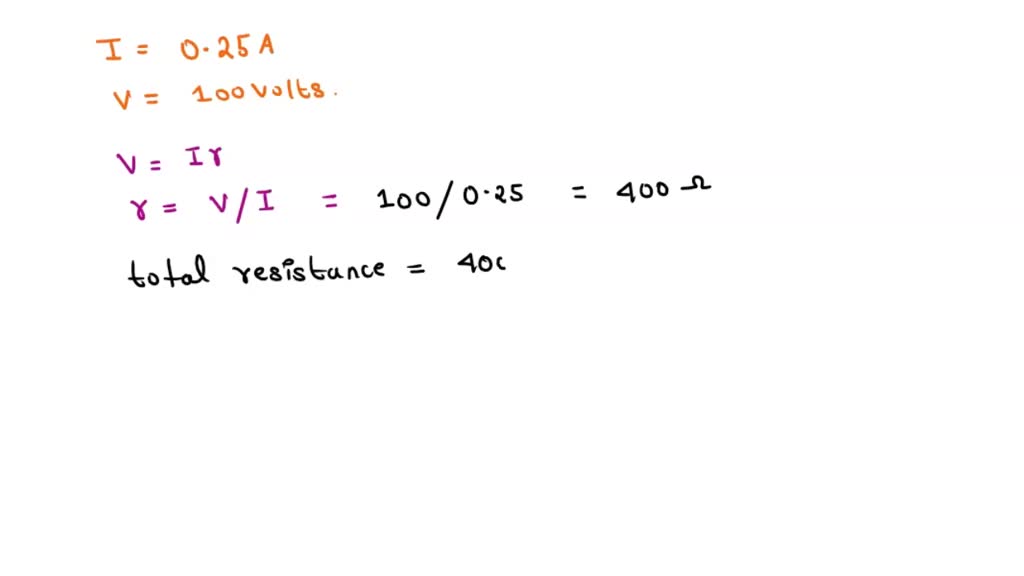 I = 0.25 A
V = 100 Volts.
V = Ir
r = V/I = 100/0.25 = 400 Ω
total resistance = 400